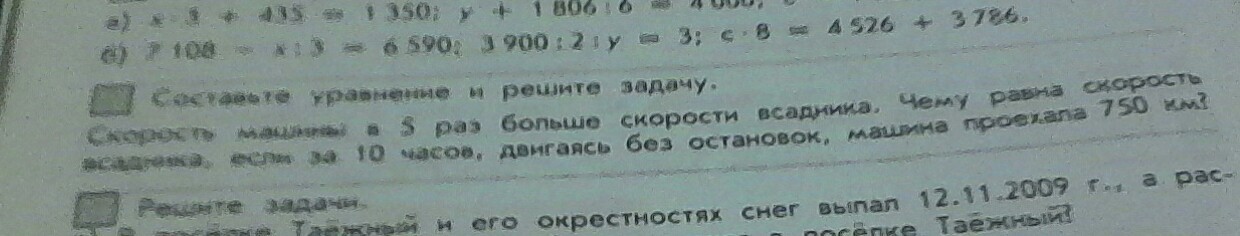 а) х · 3 + 435 = 1 350; у + 1 806 : 6 =
б) 7 108 - х : 3 = 6 590; 3 900 : 2 : у = 3; с · 8 = 4 526 + 3 786.
Составьте уравнение и решите задачу.
Скорость машины в 5 раз больше скорости всадника. Чему равна скорость
всадника, если за 10 часов, двигаясь без остановок, машина проехала 750 км?
Решите задачи.
посёлке Таёжный и его окрестностях снег выпал 12.11.2009 г., а рас-
посёлке Таёжный?